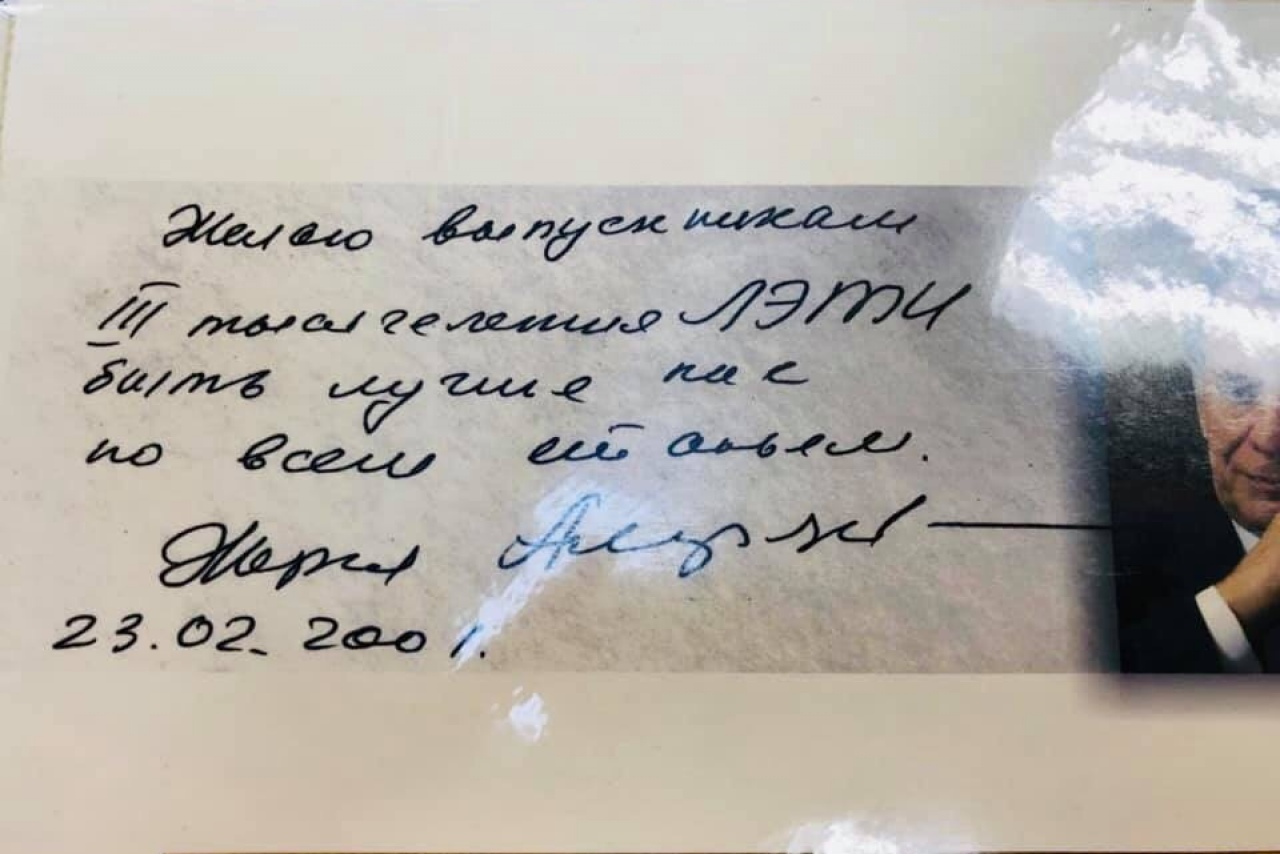 Желаю выпускникам
III тысячелетия ЛЭТИ
быть лучше нас
по всем статьям.
Жорес Алферов
23.02.2001.